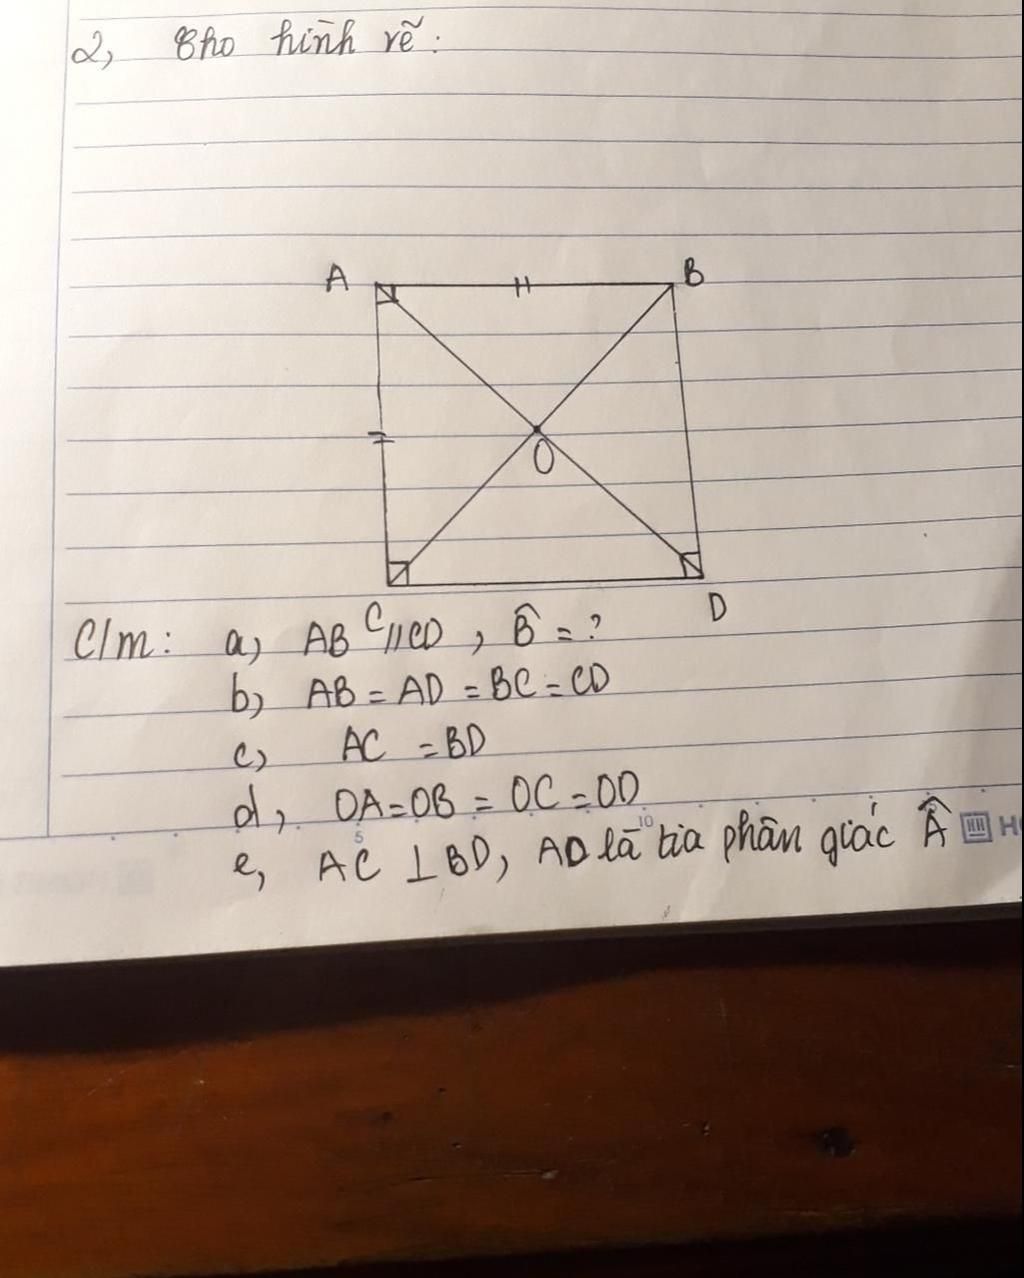 2, Cho hình vẽ:
A B
O
C D
C/m: a, AB // CD, B̂ = ?
b, AB = AD = BC = CD
c, AC = BD
d, OA = OB = OC = OD
5 10
e, AC ⊥ BD, AD là tia phân giác Â